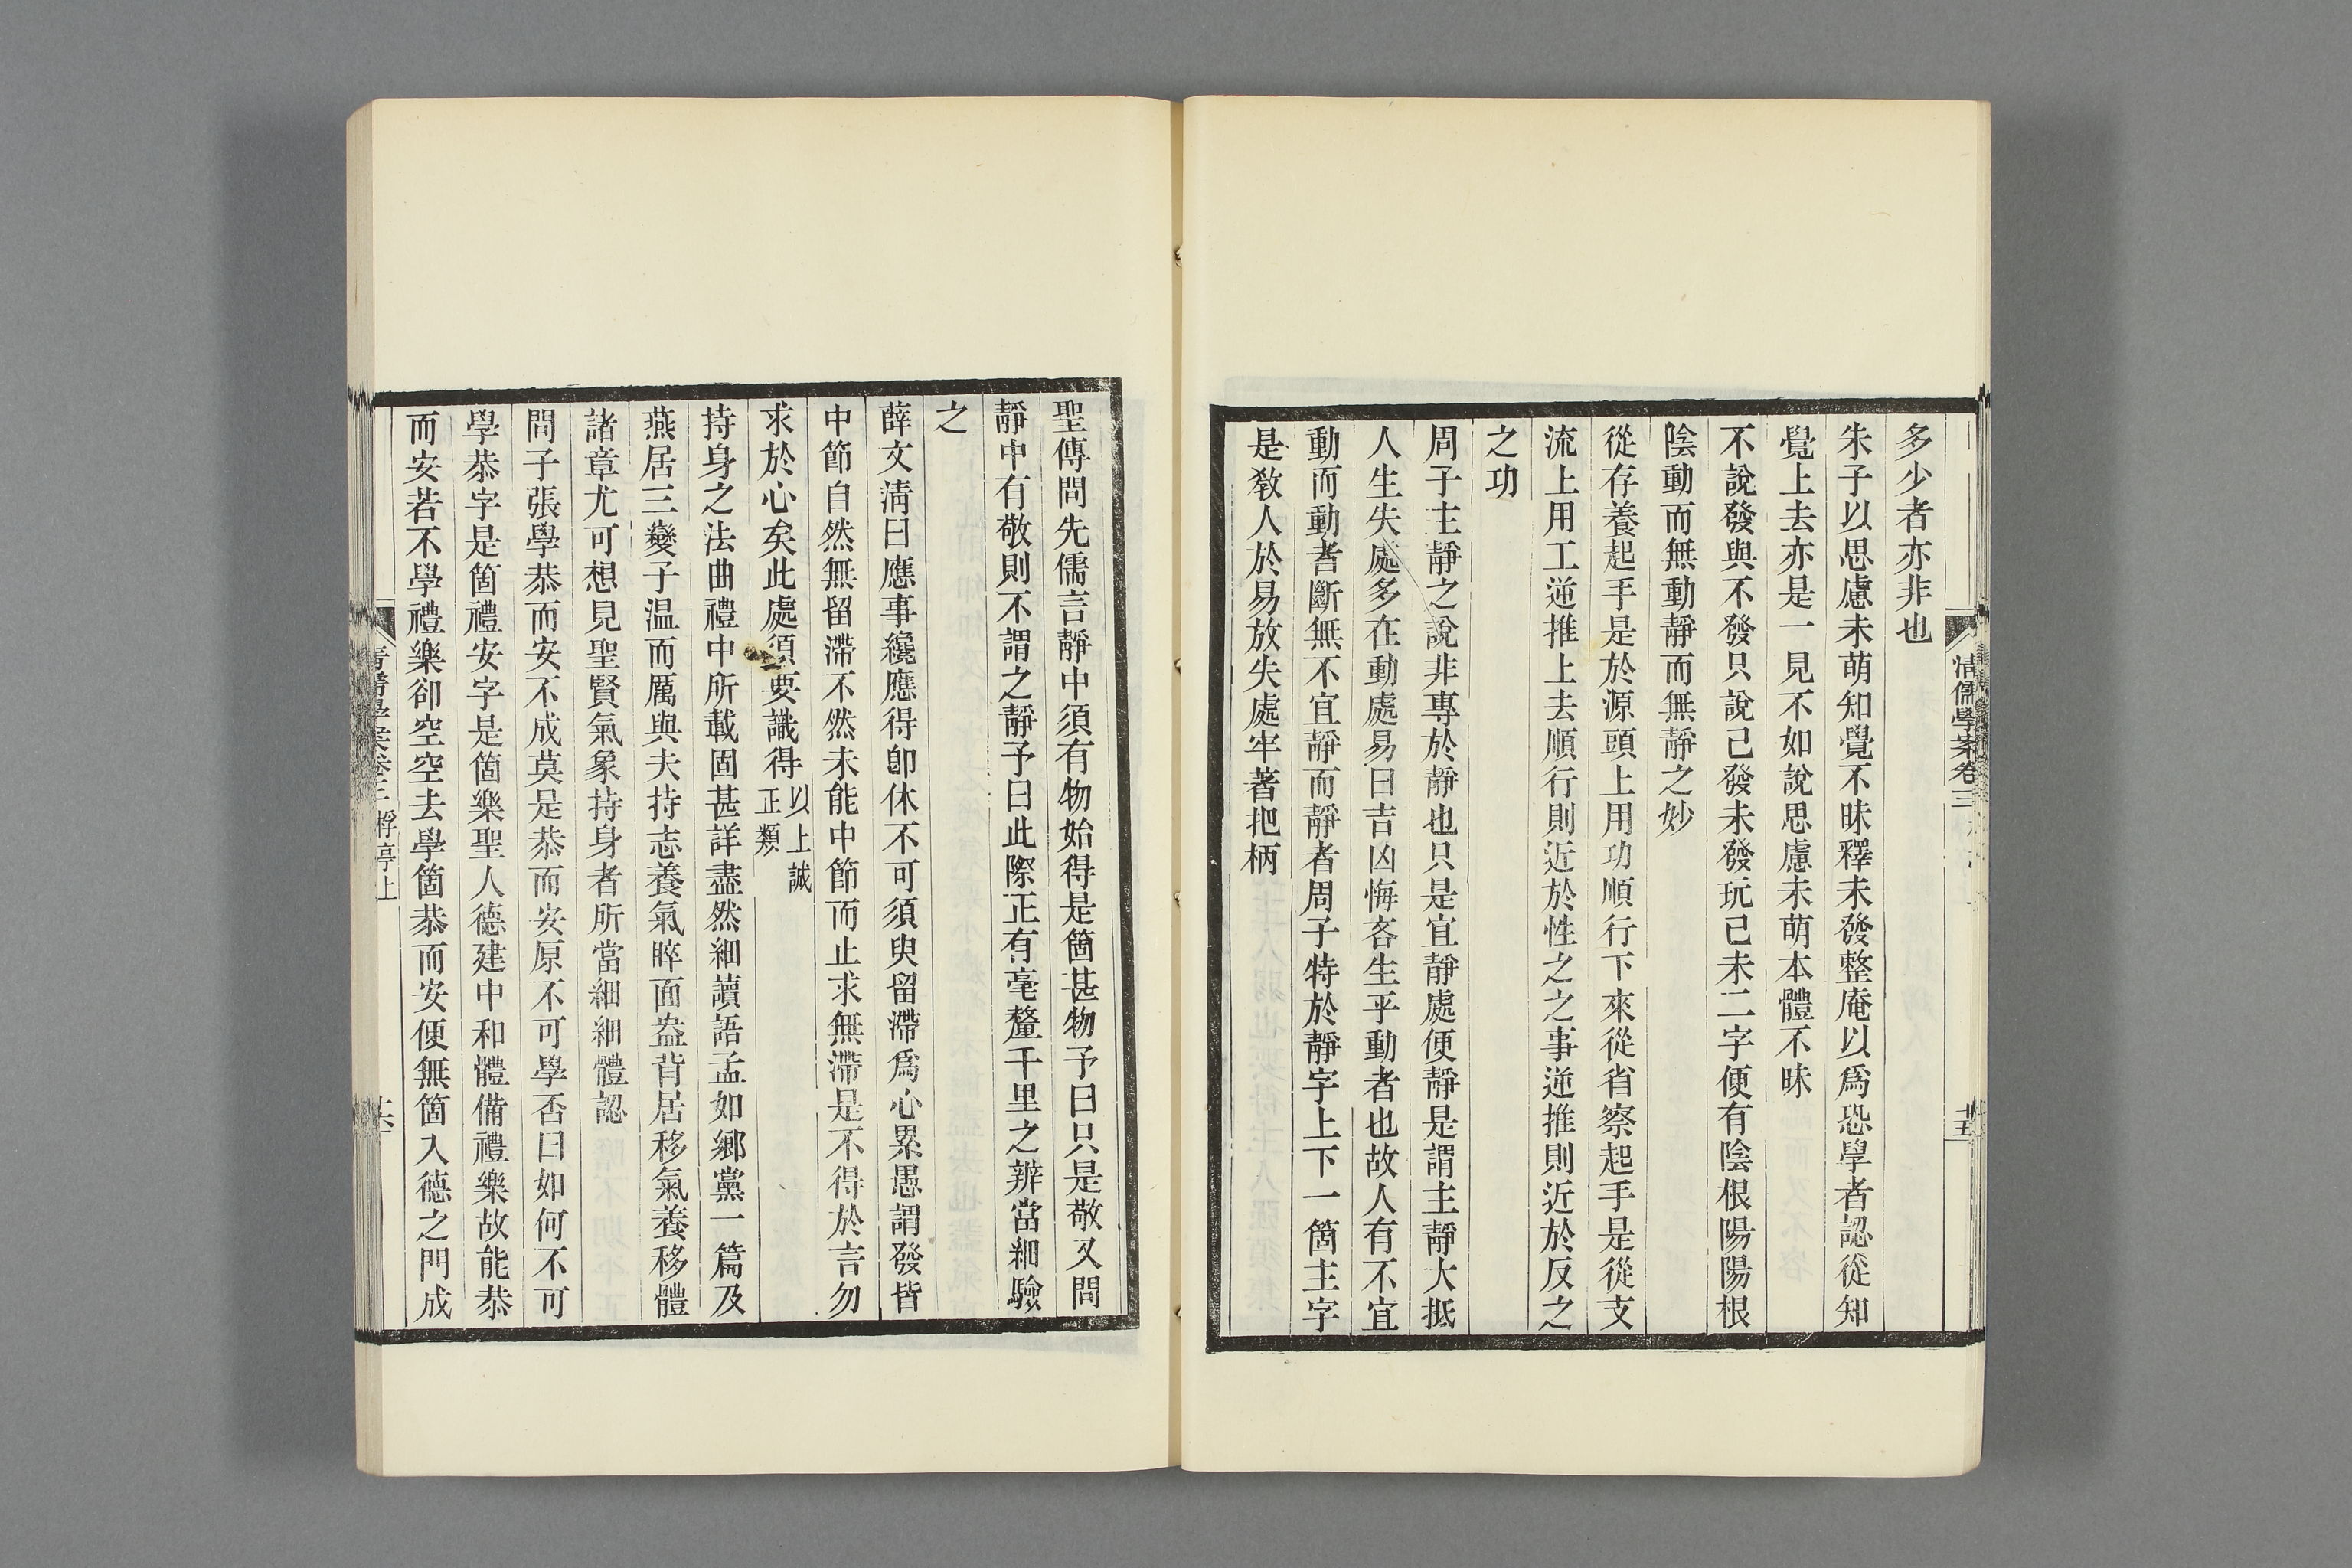 多少者亦非也
朱子以思慮未萌知覺不昧釋未發整庵以爲恐學者認從知
覺上去亦是一見不如說思慮未萌本體不昧
不說發與不發只說已發未發玩已未二字便有陰根陽陽根
陰動而無動靜而無靜之妙
從存養起手是於源頭上用功順行下來從省察起手是從支
流上用工逆推上去順行則近於性之之事逆推則近於反之
之功
周子主靜之說非專於靜也只是宜靜處便靜是謂主靜大抵
人生失處多在動處易曰吉凶悔吝生乎動者也故人有不宜
動而動者斷無不宜靜而靜者周子特於靜字上下一箇主字
是敎人於易放失處牢著把柄
清儒學案卷三
十五
聖傳問先儒言靜中須有物始得是箇甚物予曰只是敬又問
靜中有敬則不謂之靜予曰此際正有毫釐千里之辨當細驗
之
薛文淸曰應事纔應得卽休不可須臾留滯爲心累愚謂發皆
中節自然無留滯不然未能中節而止求無滯是不得於言勿
求於心矣此處須要識得以上誠正類
持身之法曲禮中所載固甚詳盡然細讀語孟如鄉黨一篇及
燕居三變子温而厲與夫持志養氣睟面盎背居移氣養移體
諸章尤可想見聖賢氣象持身者所當細細體認
問子張學恭而安不成莫是恭而安原不可學否曰如何不可
學恭字是箇禮安字是箇樂聖人德建中和體備禮樂故能恭
而安若不學禮樂卻空空去學箇恭而安便無箇入德之門成
清儒學案卷三 桴亭上
十六